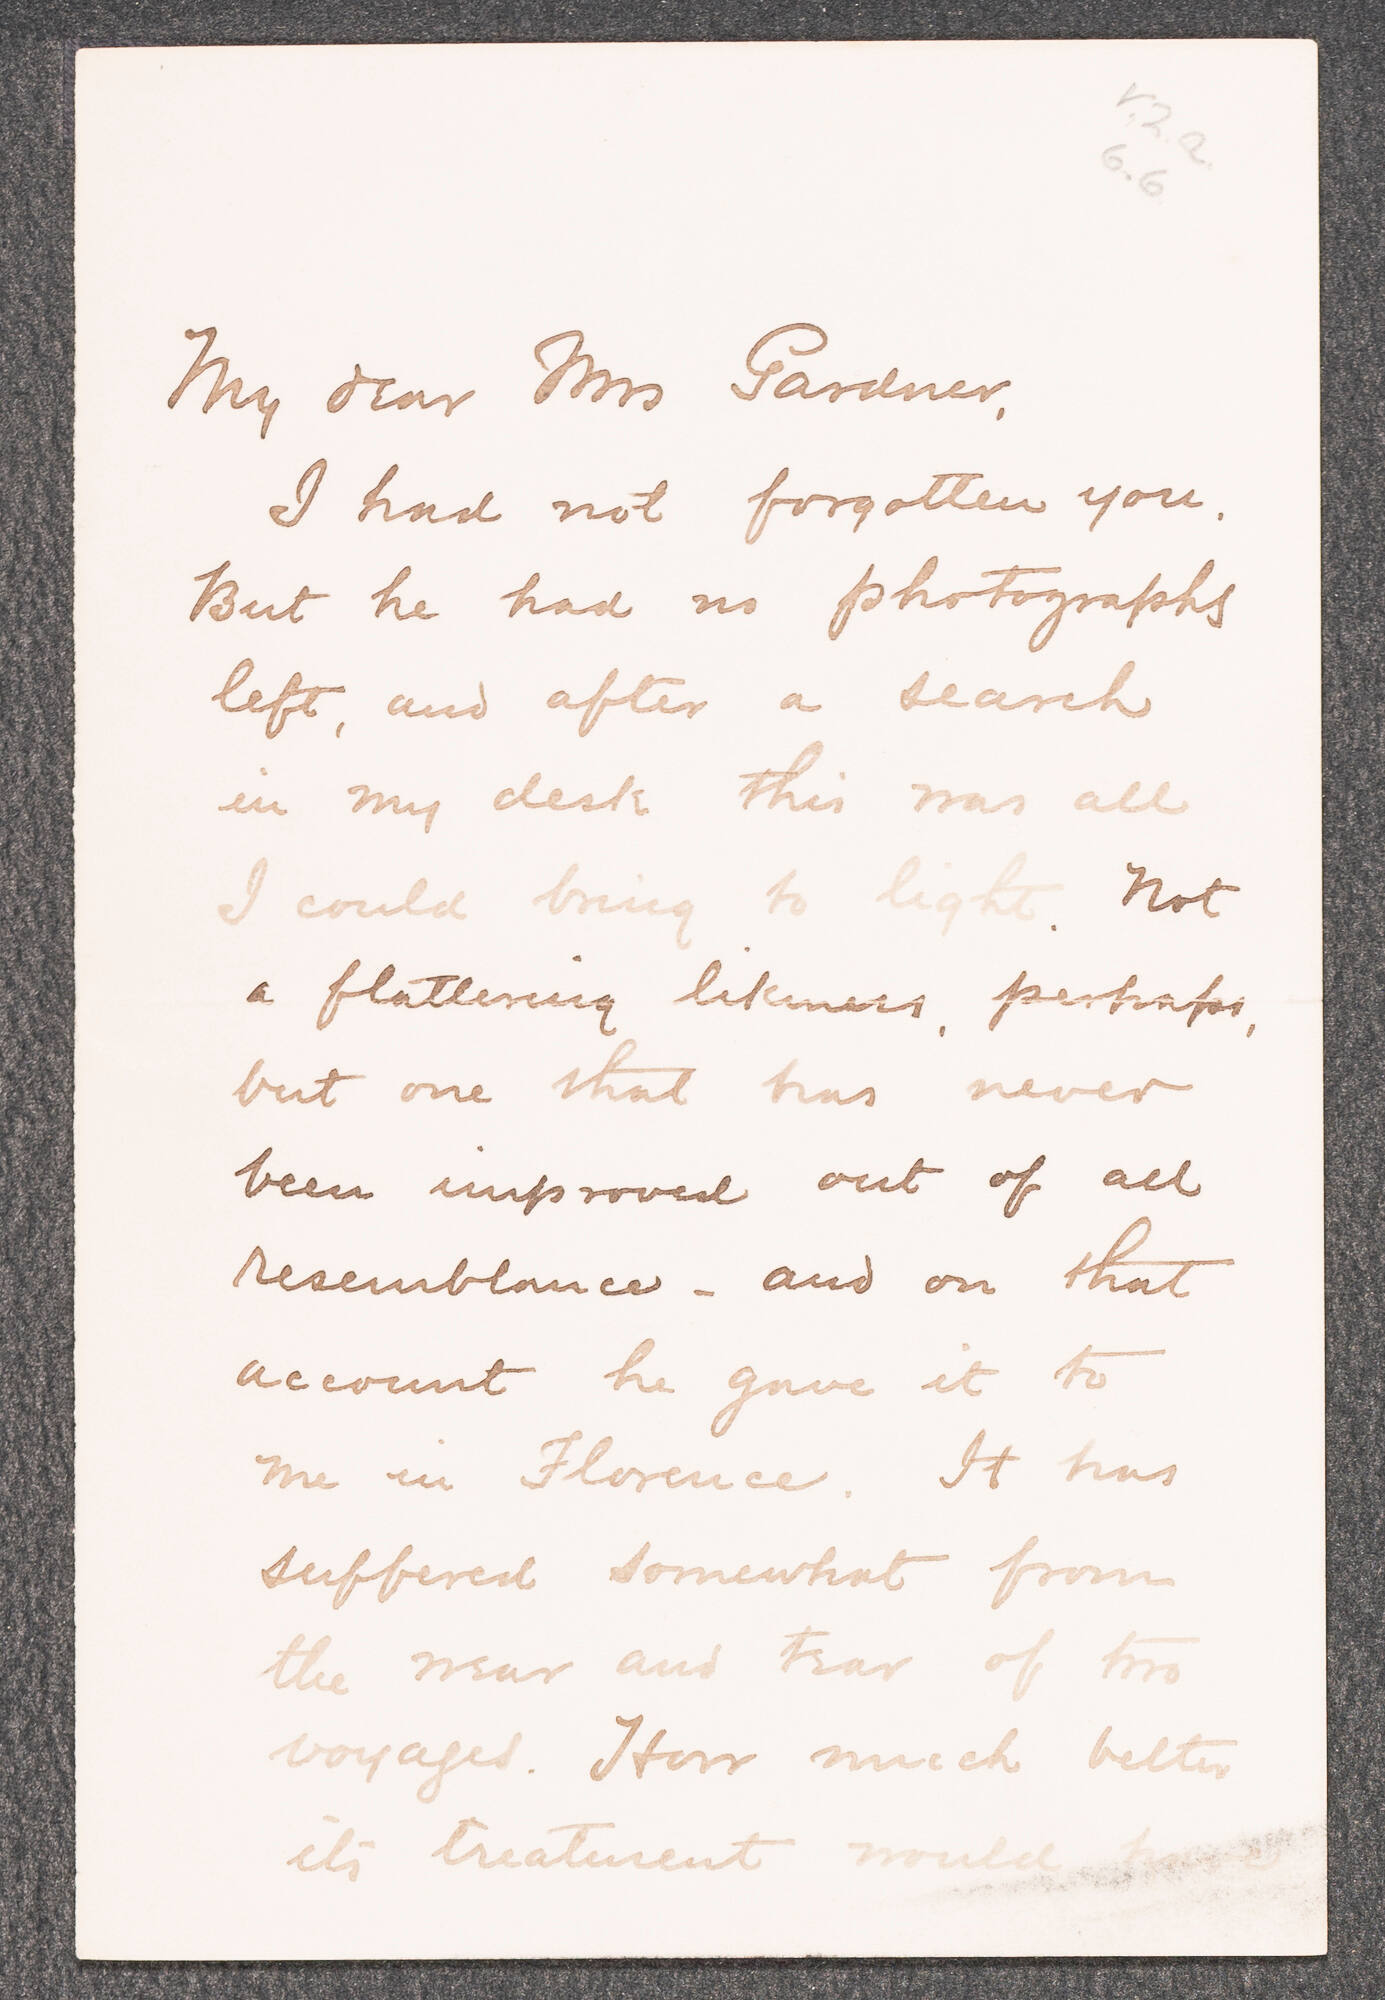 v.2.a.
6.6
My dear Mrs Gardner,
I had not forgotten you.
But he had no photographs
left, and after a search
in my desk this was all
I could bring to light. Not
a flattering likeness, perhaps,
but one that has never
been improved out of all
resemblance - and on that
account he gave it to
me in Florence. It has
suffered somewhat from
the wear and tear of two
voyages. How much better
its treatment would have